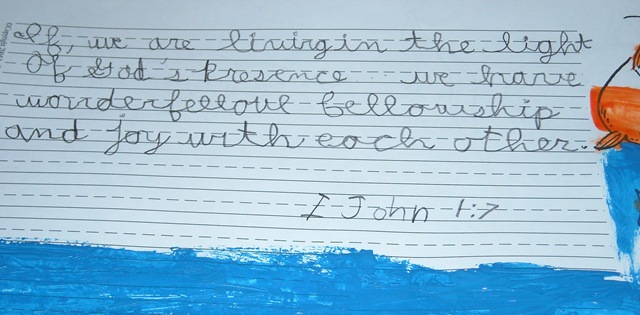 If, we are living in the light
Of God's Presence we have
wonderfelloul fellowship
and joy with each other.
I John 1:7